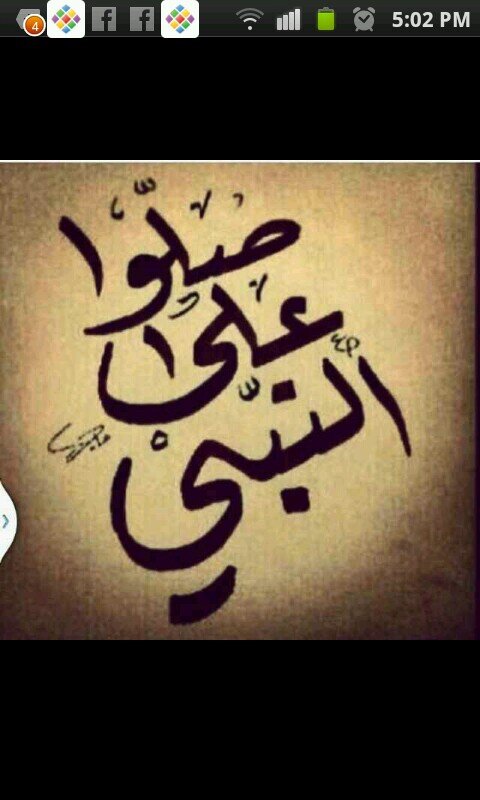 4
5:02 PM
صلّوا
على
النبيّ